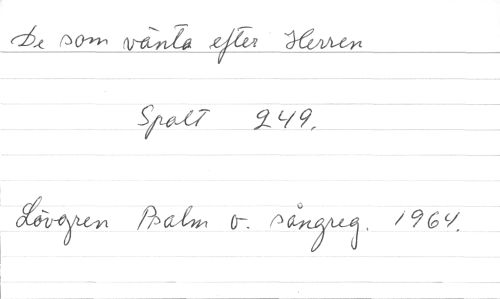 De som vänta efter Herren
Spalt 249.
Lövgren Psalm o. sångreg. 1964.